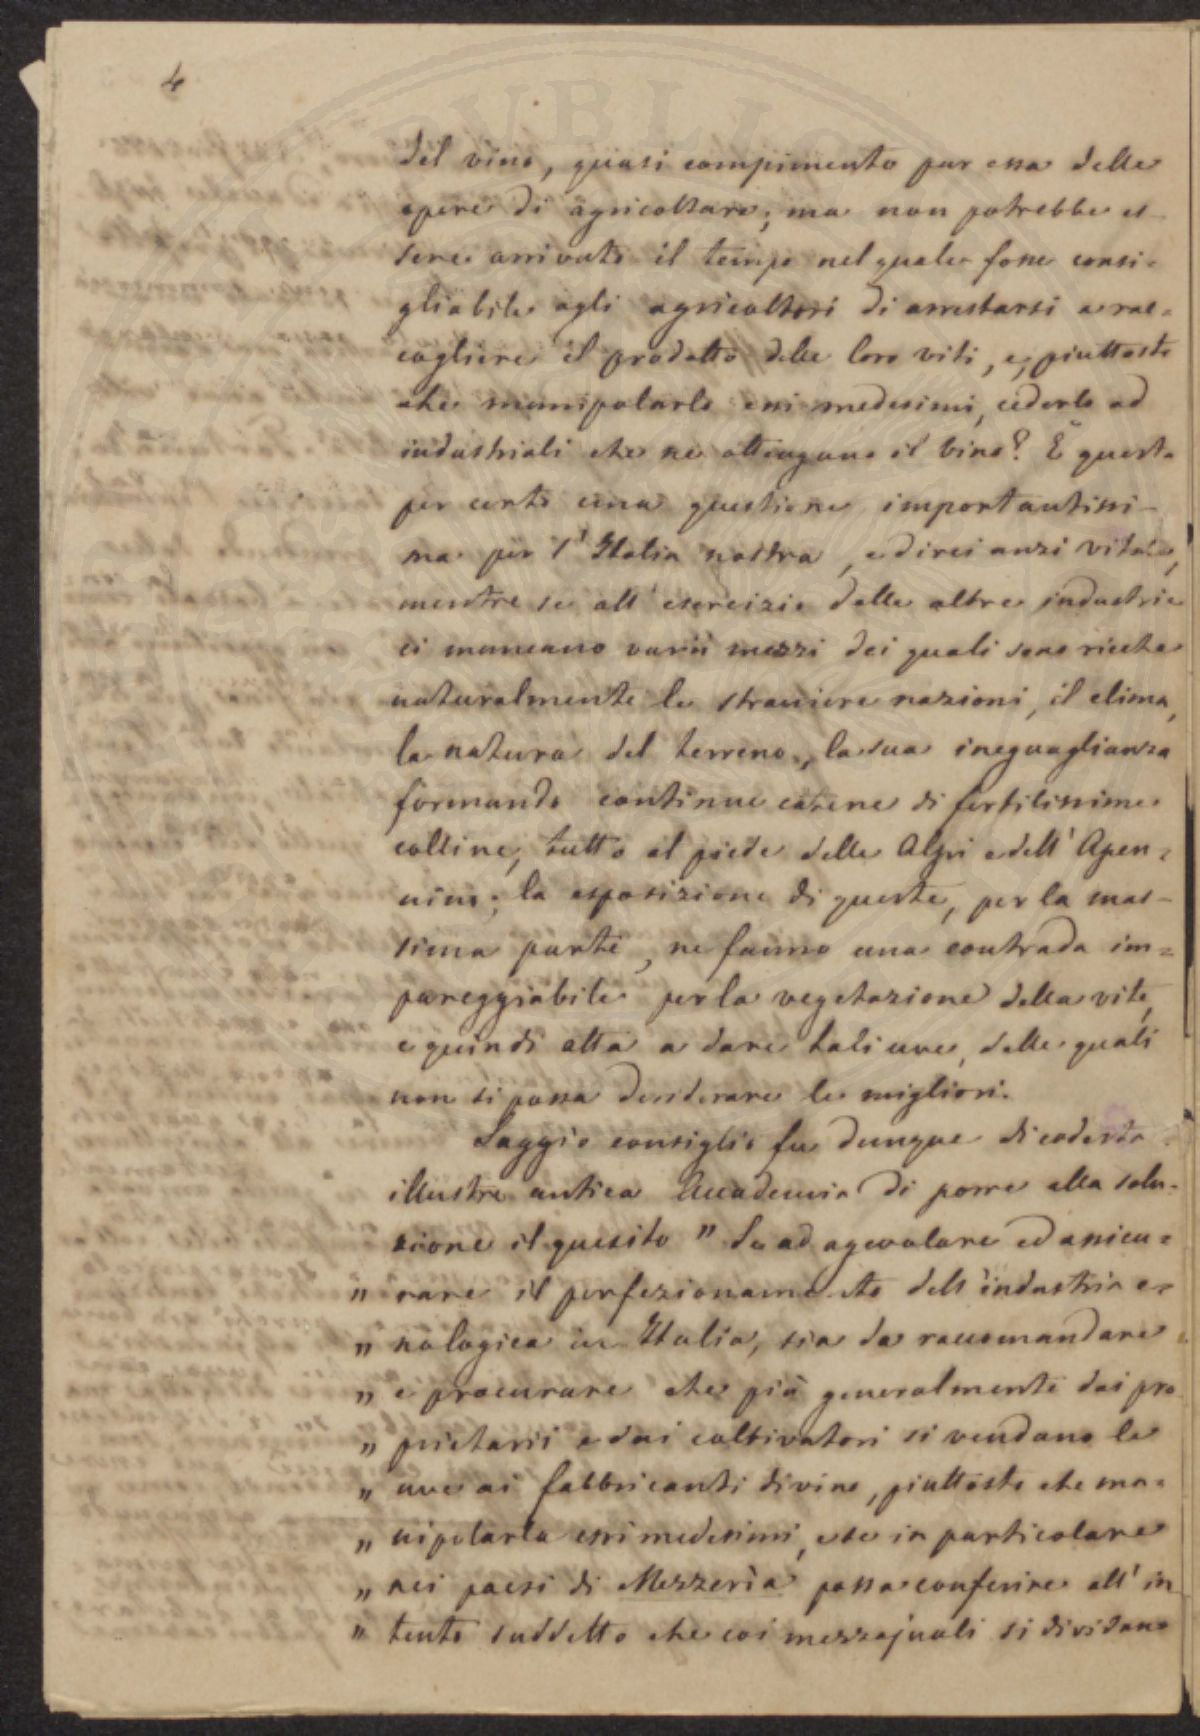 4
del vino, quasi compimento pur essa delle
opere di agricoltura; ma non potrebbe es-
sere arrivato il tempo nel quale fosse consi-
gliabile agli agricoltori di arrestarsi a rac-
cogliere il prodotto delle loro viti, e, piuttosto
che manipolarlo essi medesimi, cederlo ad
industriali che ne ottengano il vino? È questa
per certo una questione importantissi-
ma per l'Italia nostra, e direi anzi vitale,
mentre se all'esercizio delle altre industrie
ci mancano varii mezzi dei quali sono ricche
naturalmente le straniere nazioni, il clima,
la natura del terreno, la sua ineguaglianza
formando continue catene di fertilissime
colline, tutto al piede delle Alpi e dell'Apen=
nino; la esposizione di queste, per la mas-
sima parte, ne fanno una contrada im=
pareggiabile per la vegetazione della vite,
e quindi atta a dare tali uve, delle quali
non si possa desiderare le migliori.
Saggio consiglio fu dunque di codesta
illustre antica Accademia di porre alla solu-
zione il quesito " Se ad agevolare ed assicu=
" rare il perfezionamento dell'industria e=
" nologica in Italia, sia da raccomandare
" e procurare che più generalmente dai pro
" prietarii e dai coltivatori si vendano le
" uve ai fabbricanti di vino, piuttosto che ma=
" nipolarla essi medesimi, e se in particolare
" nei paesi di Mezzerìa possa conferire all'in
" tento suddetto che coi mezzajuoli si dividano